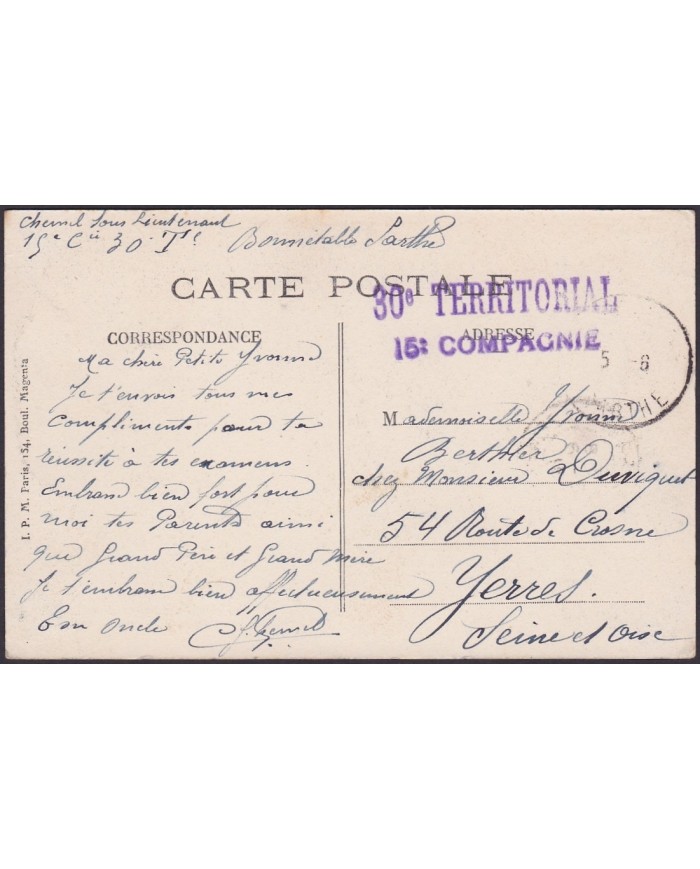 Chemel Sous Lieutenant
15e Cie 30 Tal Bonnétable Sarthe
CARTE POSTALE
30e TERRITORIAL
15e COMPAGNIE
CORRESPONDANCE
ADRESSE
5 -8
RTHE
I. P. M. Paris, 154, Boul. Magenta
Ma chère Petite Yvonne
Je t'envois tous mes
compliments pour ta
réussite à tes examens
Embrasse bien fort pour
moi tes Parents ainsi
que Grand Père et Grand Mère
Je t'embrasse bien affectueusement
Ton Oncle
Mademoiselle Yvonne
Berthier
chez Monsieur Duviquet
54 Route de Crosne
Yerres.
Seine et Oise